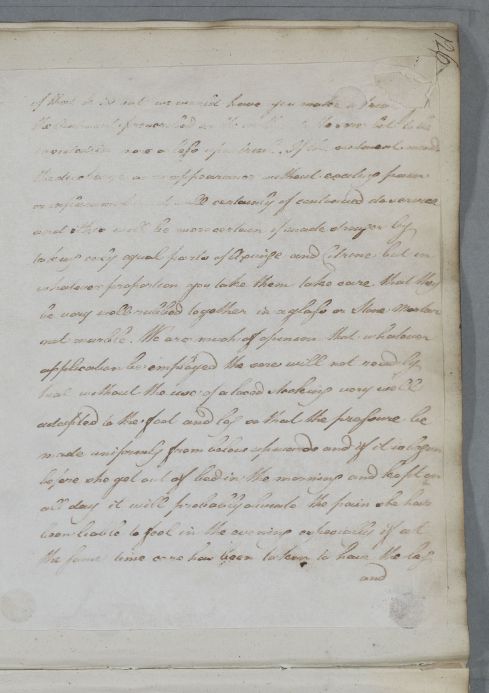 126
of that be in out we would have you make a
the ointment prescribed to the sore but to be
If the ointment mend
the discharge or appearance without causing pain
or inflammation it will certainly if continued do service
and this will be more certain if made stronger by
taking very equal parts of and Citrine, but in
whatever proportion you take them take care that they
be very well rubbed together in a glass or Stone Mortar
not marble. We are much of opinion that whatever
application be employed the sore will not readily
heal without the use of a laced Stocking very well
adapted to the foot and leg so that the pressure be
made uniformly from below upwards and if it is on
before she get out of bed in the morning and kept on
all day it will probably obviate the pain she has
been liable to feel in the evening especially if at
the same time care has been taken to have the leg
and